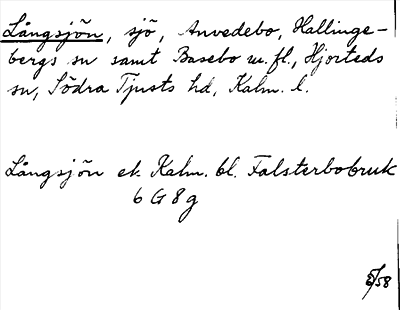 Långsjön, sjö, Anvedebo, Hallinge-
bergs sn samt Basebo m. fl., Hjorteds
sn, Södra Tjusts hd, Kalm. l.
Långsjön ek. Kalm. bl. Falsterbobruk
6 G 8 g
/58